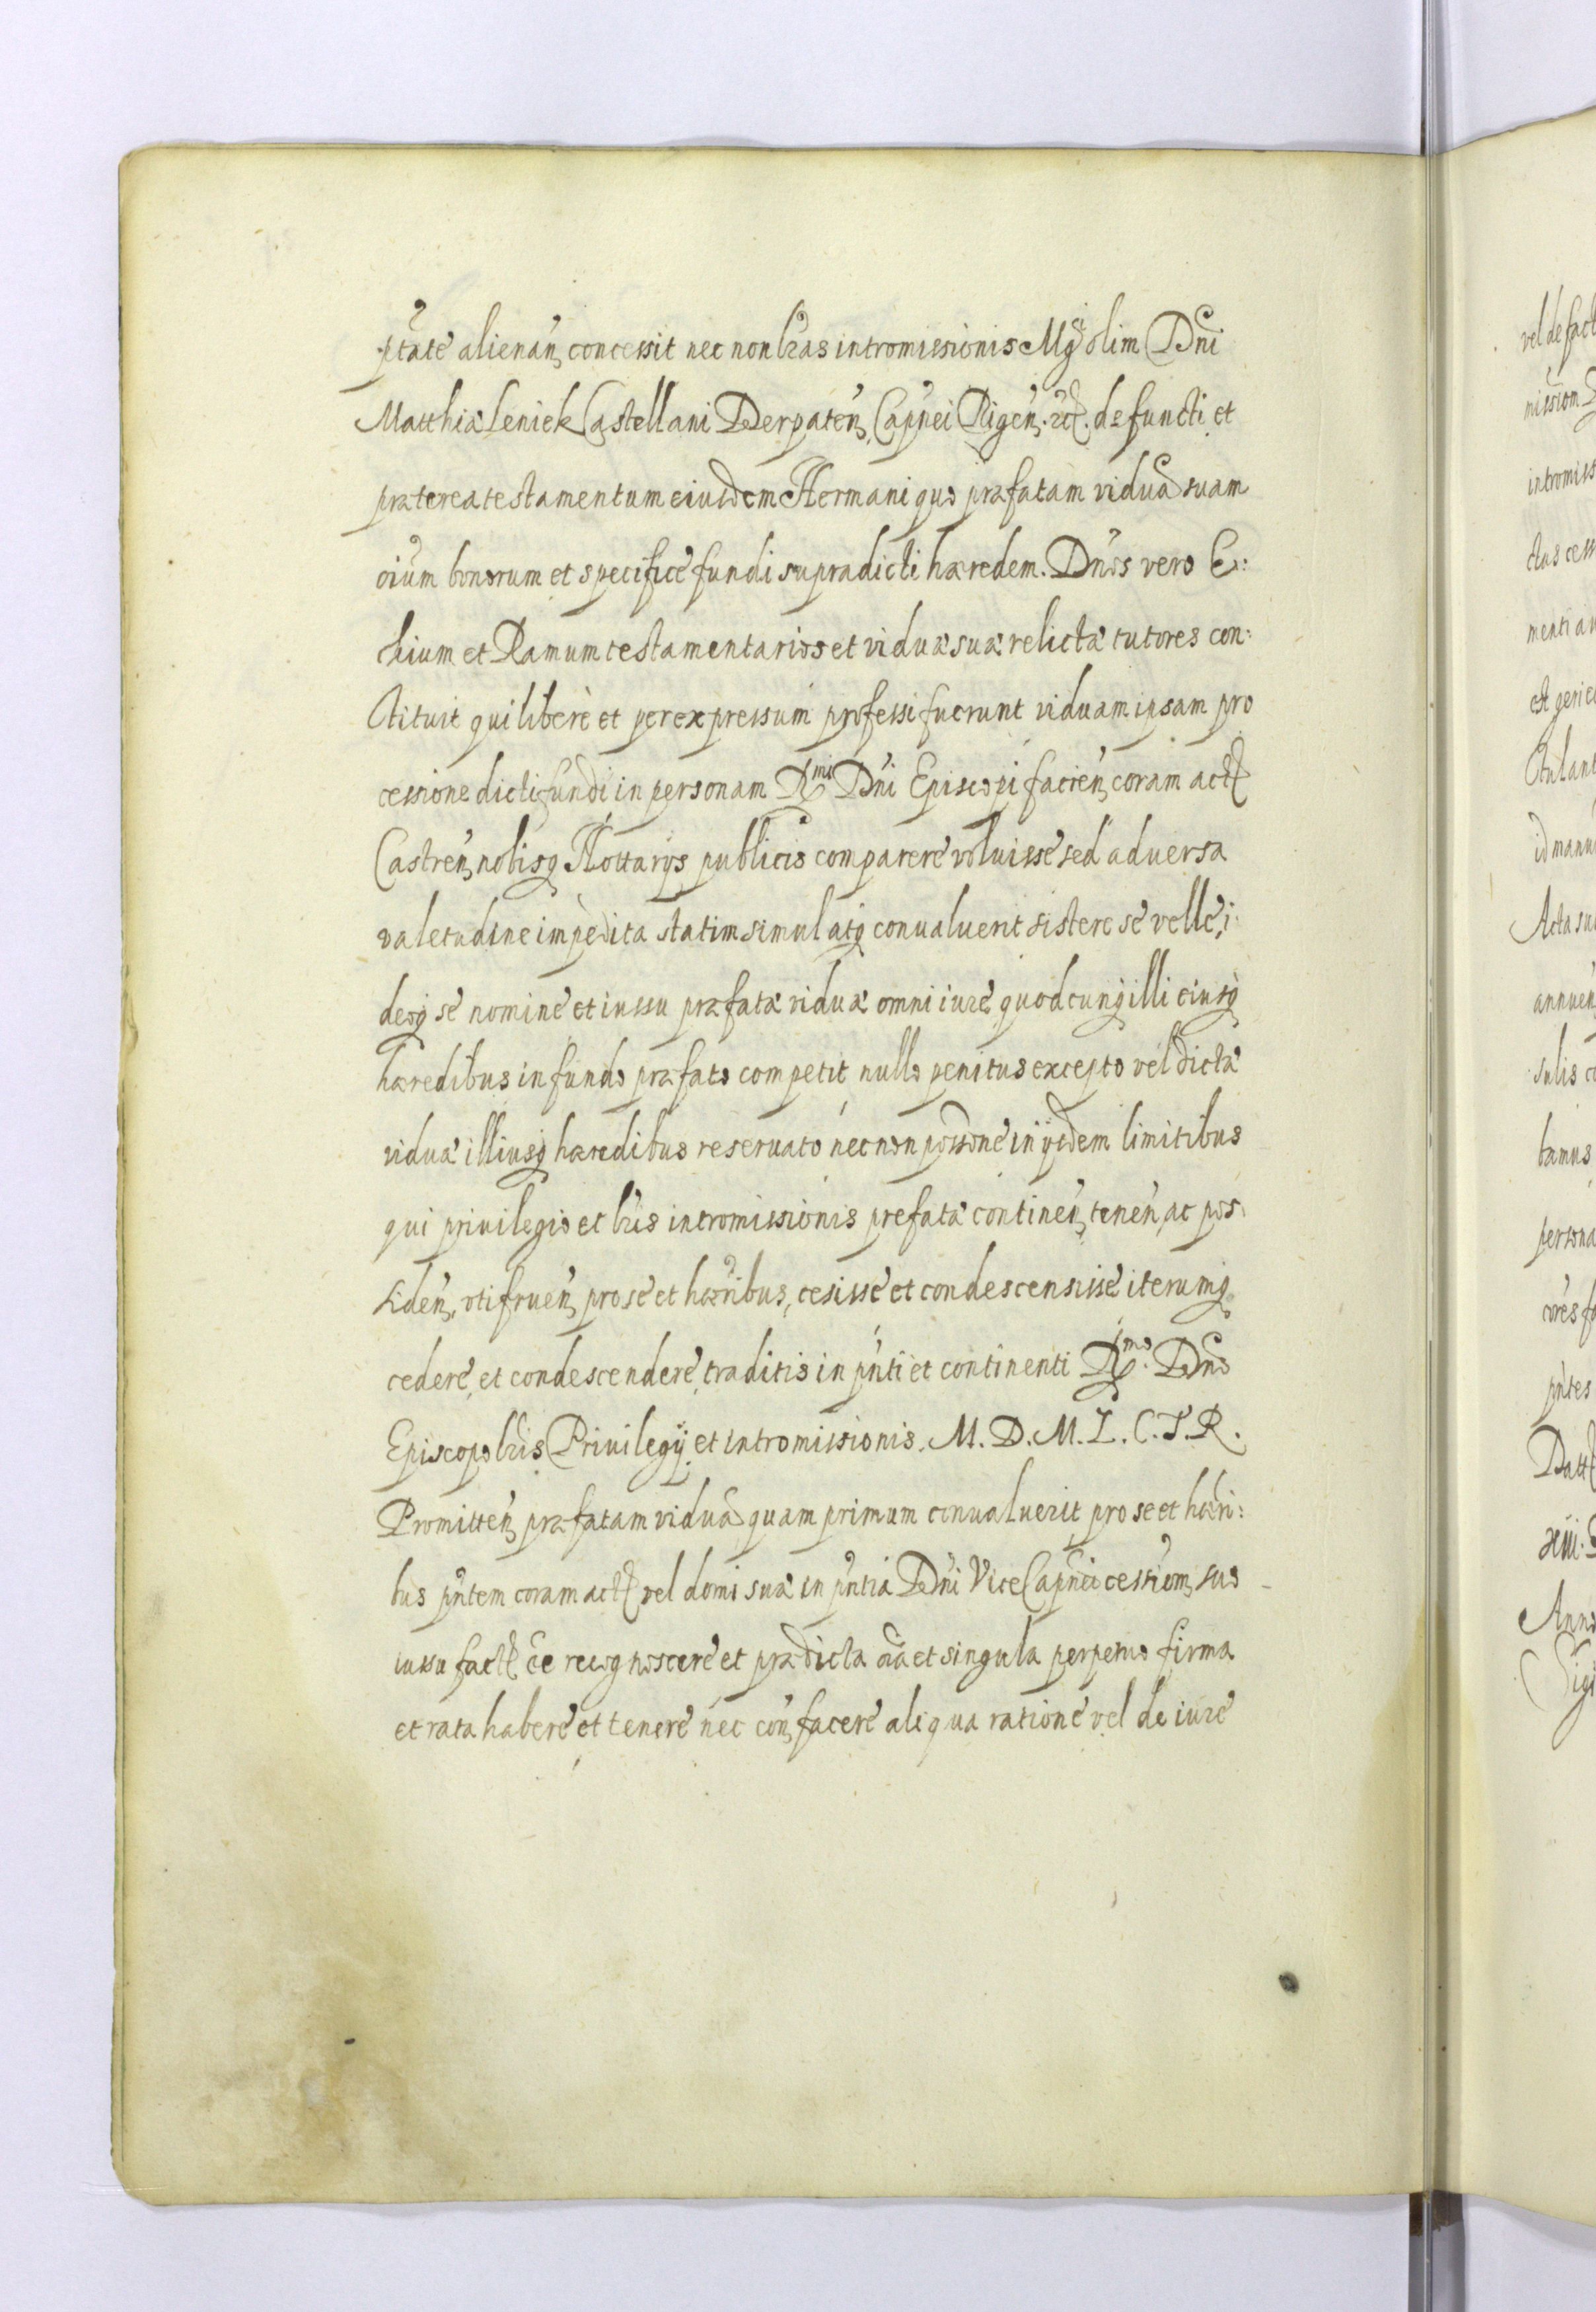 ptãte alienan̄, concessit nec non lr̃as intromissionis Mg̃ci olim Dñi
Matthiæ Leniek Castellani Derpaten̄, Capnei Rigen̄. etc. defuncti, et
præterea testamentum eiusdem Hermani quo præfatam viduã suam
oiũm bonorum et specificè fundi supradicti hæredem. Dños vero E:
kium et Ramum testamentarios et viduæ suæ relictæ tutores con:
stituit qui liberè et per expressum professi fuerunt viduam ipsam pro
cessione dicti fundi in personam Rmi Dñi Episcopi facien̄, coram actis
Castren̄, nobisq Nottarijs publicis comparere voluisse sed aduersa
valetudine impedita statim simul atq conualuerit sistere se velle, i:
deoq se nomine et iussu præfatæ viduæ omni iure quodcunq illi eiusq
hæredibus in fundo præfato competit nullo penitus excepto vel dictæ
viduæ illiusq hæredibus reseruato nec non possone in ijsdem limitibus
qui priuilegio et lr̃is intromissionis prefatæ continen̄, tenen̄, ac pos:
siden̄, vti fruen̄, pro se et hæribus, cesisse et condescensisse iterumq
cedere, et condescendere, traditis in pñti et continenti Rmo. Dño
Episcopo lr̃is Priuilegij et intromissionis. M. D. M. L. C. T. R.
Promitten̄, præfatam viduã quam primum conualuerit pro se et hæri:
bus pñtem coram actis vel domi suæ in pñtia Dñi Vice Capnei cessiom̄, suo
iussu factã ẽe recognoscere et prædicta oĩa et singula perpetuo firma
et rata habere et tenere nec con̄, facere aliqua ratione vel de iure
vel de fact
intromiss
menti au
id manu
Acta su
annuen
bamus
persona
pñtes
xiii.
Anno